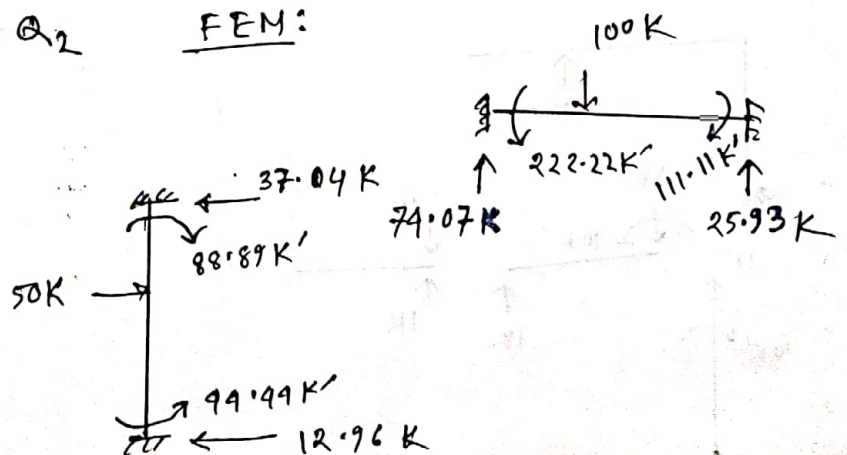 Q2 FEM:
100K
222.22K'
111.11K'
74.07K
25.93K
37.04K
88.89K'
50K
44.44K'
12.96K